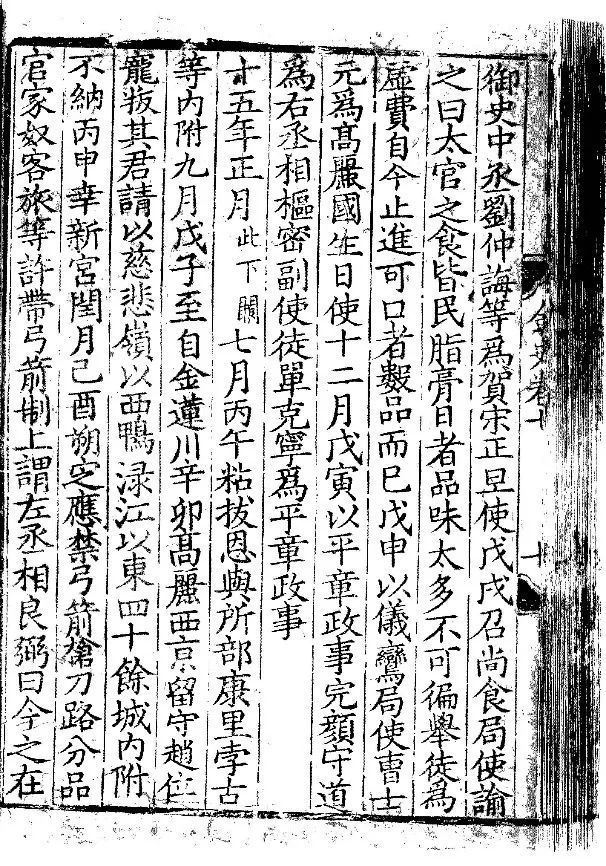 御史中丞劉仲誨等爲賀宋正早使戊戌召尚食局使諭
之曰太官之食皆民脂膏日者品味太多不可徧舉徒爲
虛費自今止進可口者數品而已戊申以儀鸞局使曹士
元爲高麗國生日使十二月戊寅以平章政事完顏守道
爲右丞相樞密副使徒單克寧爲平章政事
十五年正月此下闕七月丙午粘拔恩與所部康里孛古
等內附九月戊子至自金蓮川辛卯高麗西京留守趙位
寵叛其君請以慈悲嶺以西鴨淥江以東四十餘城內附
不納丙申幸新宮閏月己酉朔定應禁弓箭槍刀路分品
官家奴客旅等許帶弓箭制上謂左丞相良弼曰今之在
金史卷